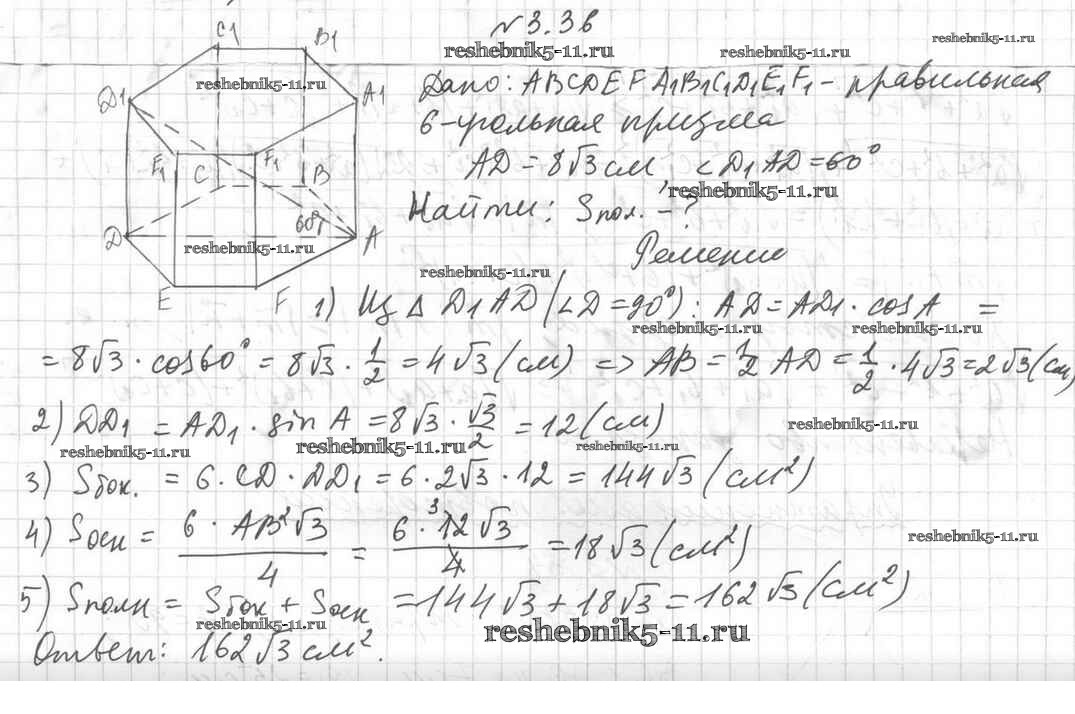 N 3.3в
reshebnik5-11.ru
reshebnik5-11.ru
reshebnik5-11.ru
C1 B1
reshebnik5-11.ru
D1 A1
E1 F1
C B
60°
D A
reshebnik5-11.ru
E F
Дано: ABCDEF A₁B₁C₁D₁E₁F₁ - правильная
6-угольная призма
AD = 8√3 см, <D₁AD = 60°
reshebnik5-11.ru
Найти: Sпол. - ?
Решение
reshebnik5-11.ru
1) Из △ D₁AD (∠D = 90°): AD = AD₁ · cos A =
reshebnik5-11.ru reshebnik5-11.ru
= 8√3 · cos 60° = 8√3 · 1/2 = 4√3 (см) => AB = 1/2 AD = 1/2 · 4√3 = 2√3 (см)
2) DD₁ = AD₁ · sin A = 8√3 · √3/2 = 12 (см)
reshebnik5-11.ru
reshebnik5-11.ru reshebnik5-11.ru reshebnik5-11.ru
3) Sбок. = 6 · CD · DD₁ = 6 · 2√3 · 12 = 144√3 (см²)
4) Sосн = 6 · AB²√3 / 4 = 6 · 12 3 √3 / 4 = 18√3 (см²)
reshebnik5-11.ru
5) Sполн = Sбок + Sосн = 144√3 + 18√3 = 162√3 (см²)
reshebnik5-11.ru reshebnik5-11.ru
Ответ: 162√3 см².